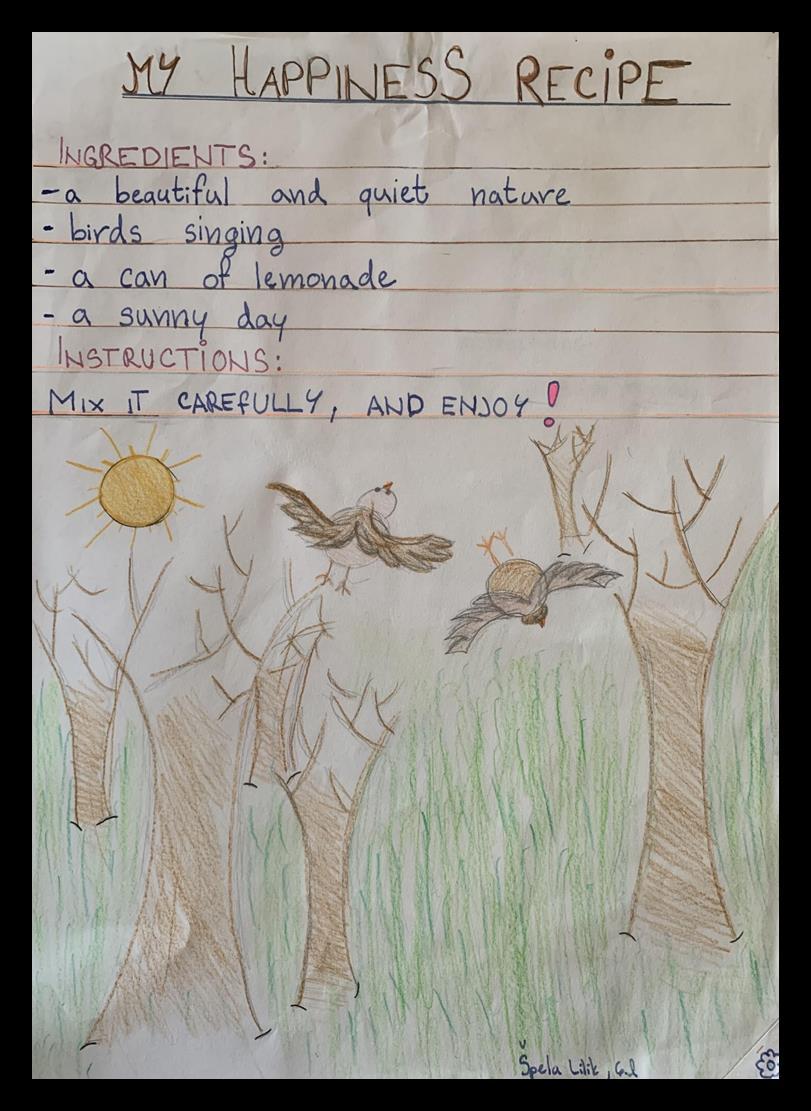 MY HAPPINESS RECIPE
INGREDIENTS:
- a beautiful and quiet nature
- birds singing
- a can of lemonade
- a sunny day
INSTRUCTIONS:
MIX IT CAREFULLY, AND ENJOY!
Špela Lilik,